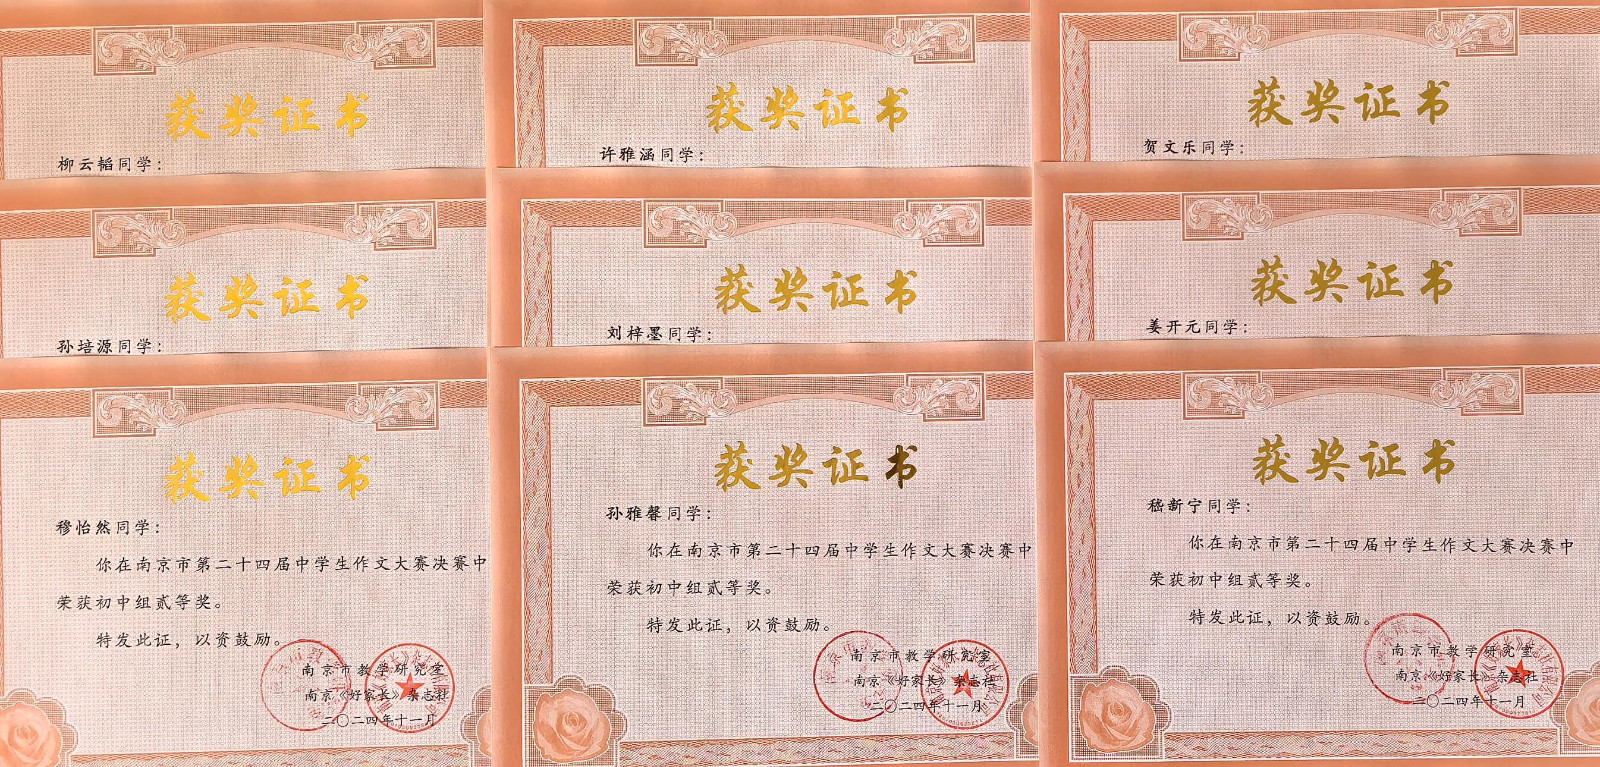 获奖证书
柳云韬同学：
获奖证书
许雅涵同学：
获奖证书
贺文乐同学：
获奖证书
孙培源同学：
获奖证书
刘梓墨同学：
获奖证书
姜开元同学：
获奖证书
穆怡然同学：
你在南京市第二十四届中学生作文大赛决赛中
荣获初中组贰等奖。
特发此证，以资鼓励。
南京市教学研究室
南京《好家长》杂志社
二〇二四年十一月
获奖证书
孙雅馨同学：
你在南京市第二十四届中学生作文大赛决赛中
荣获初中组贰等奖。
特发此证，以资鼓励。
南京市教学研究室
南京《好家长》杂志社
二〇二四年十一月
获奖证书
嵇新宁同学：
你在南京市第二十四届中学生作文大赛决赛中
荣获初中组贰等奖。
特发此证，以资鼓励。
南京市教学研究室
南京《好家长》杂志社
二〇二四年十一月